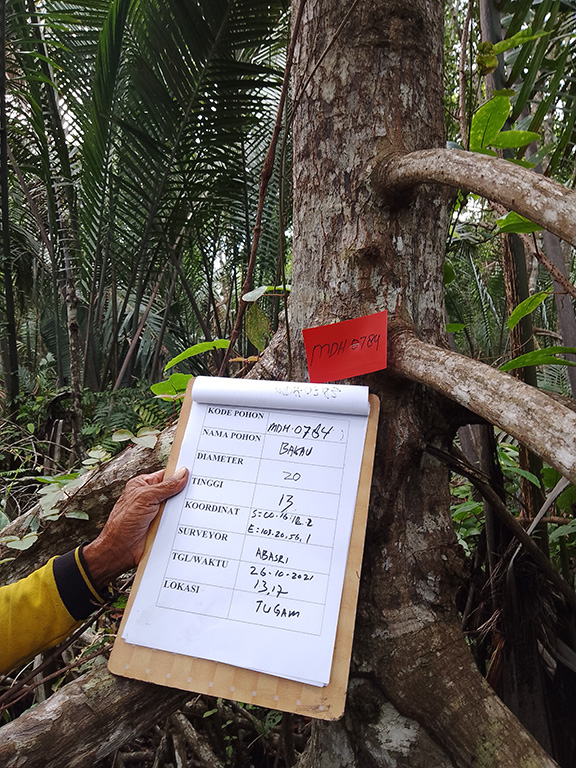 MDH 0784
KODE POHON MDH.0784
NAMA POHON BAKAU
DIAMETER 20
TINGGI 13
KOORDINAT S=00.16.18.2
E=103.20.56.1
SURVEYOR ABASRI
TGL/WAKTU 26-10-2021
13,17
LOKASI TUGAM